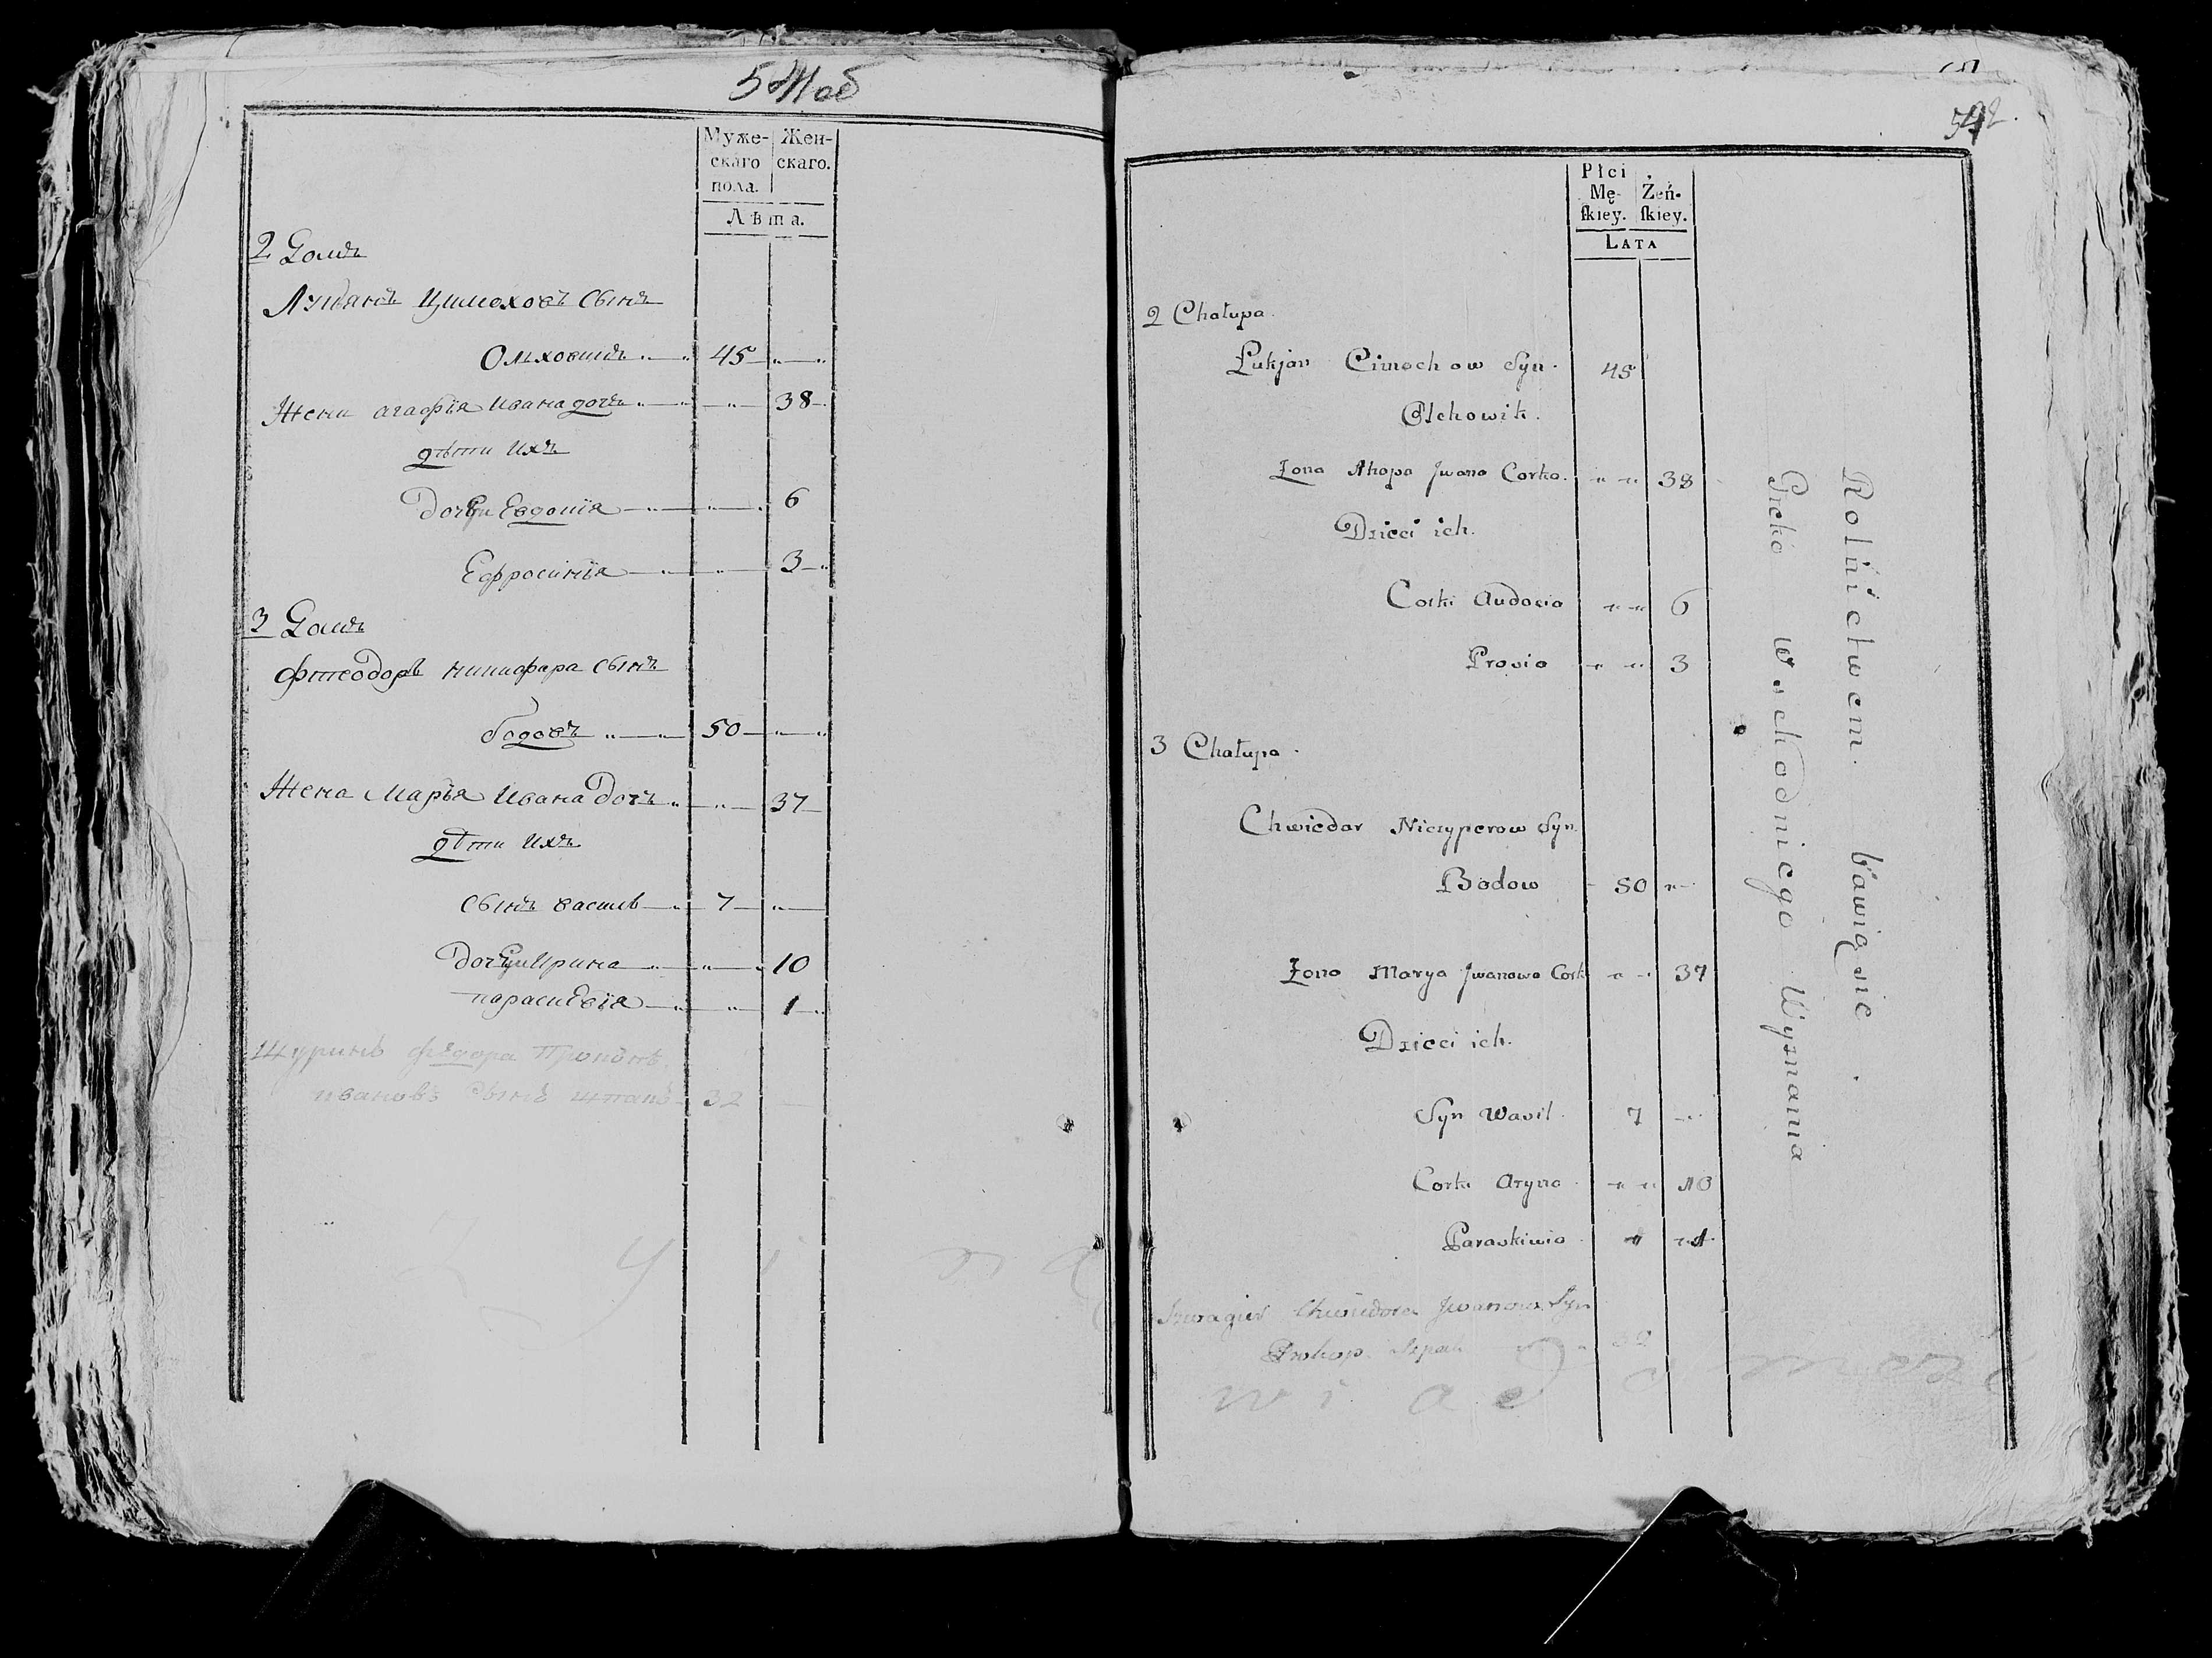 541об
Муже- Жен-
скаго скаго.
пола.
Лѣта.
2 Домъ
Лукянъ Цимоховъ сынъ
Ольховикъ 45
Жена агафїя Ивана дочь 38
дѣти ихъ
Дочери Евдокїя 6
Ефросинїя 3
3 Домъ
Фтеодоръ никифара сынъ
бодовъ 50
Жена Марья Ивана Дочь 37
дѣти ихъ
сынъ василь 7
Дочери Ирина 10
параскевїя 1
Шуринъ федора
ивановъ сынъ шпакъ 32
542.
Płci
Mę- Żeń-
ſkiey. ſkiey.
LATA
2 Chałupa.
Łukjan Cimochow Syn. 45
Olchowik.
Żona Ahapa Jwana Corka. 38
Dzieci ich.
Corki Audosia 6
Prosia 3
3 Chałupa.
Chwiedar Niczyperow Syn.
Bodow 50
Żona Marya Jwanowa Cork 37
Dzieci ich.
Syn Wasil. 7
Corki Aryna 10
Paraskiwia 1
Szwagier Chwiedora Jwanow Syn
Prokop Szpak 32
Rolnictwem bawią się.
Grcko Wschodniego Wyznania